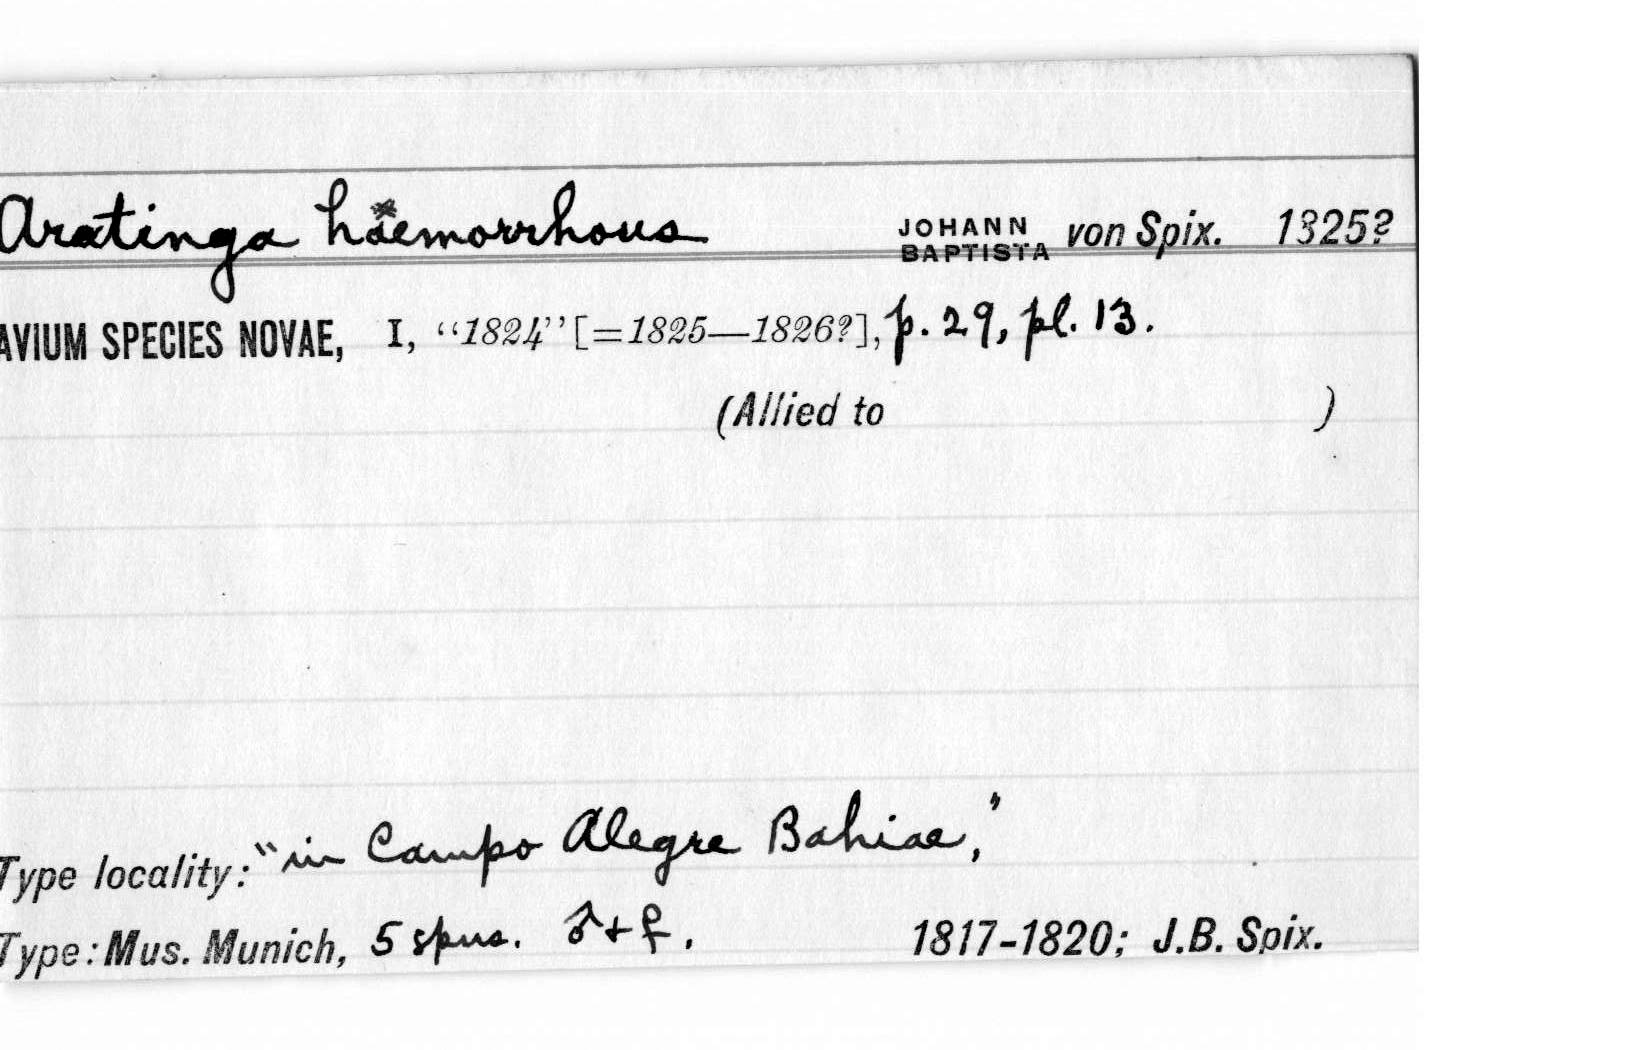 Aratinga haemorrhous JOHANN BAPTISTA von Spix. 1825?
AVIUM SPECIES NOVAE, I, “1824” [=1825—1826?], p. 29, pl. 13.
(Allied to )
Type locality: "in Campo Alegre Bahiae,"
Type: Mus. Munich, 5 spns. ♂+♀. 1817-1820; J.B. Spix.